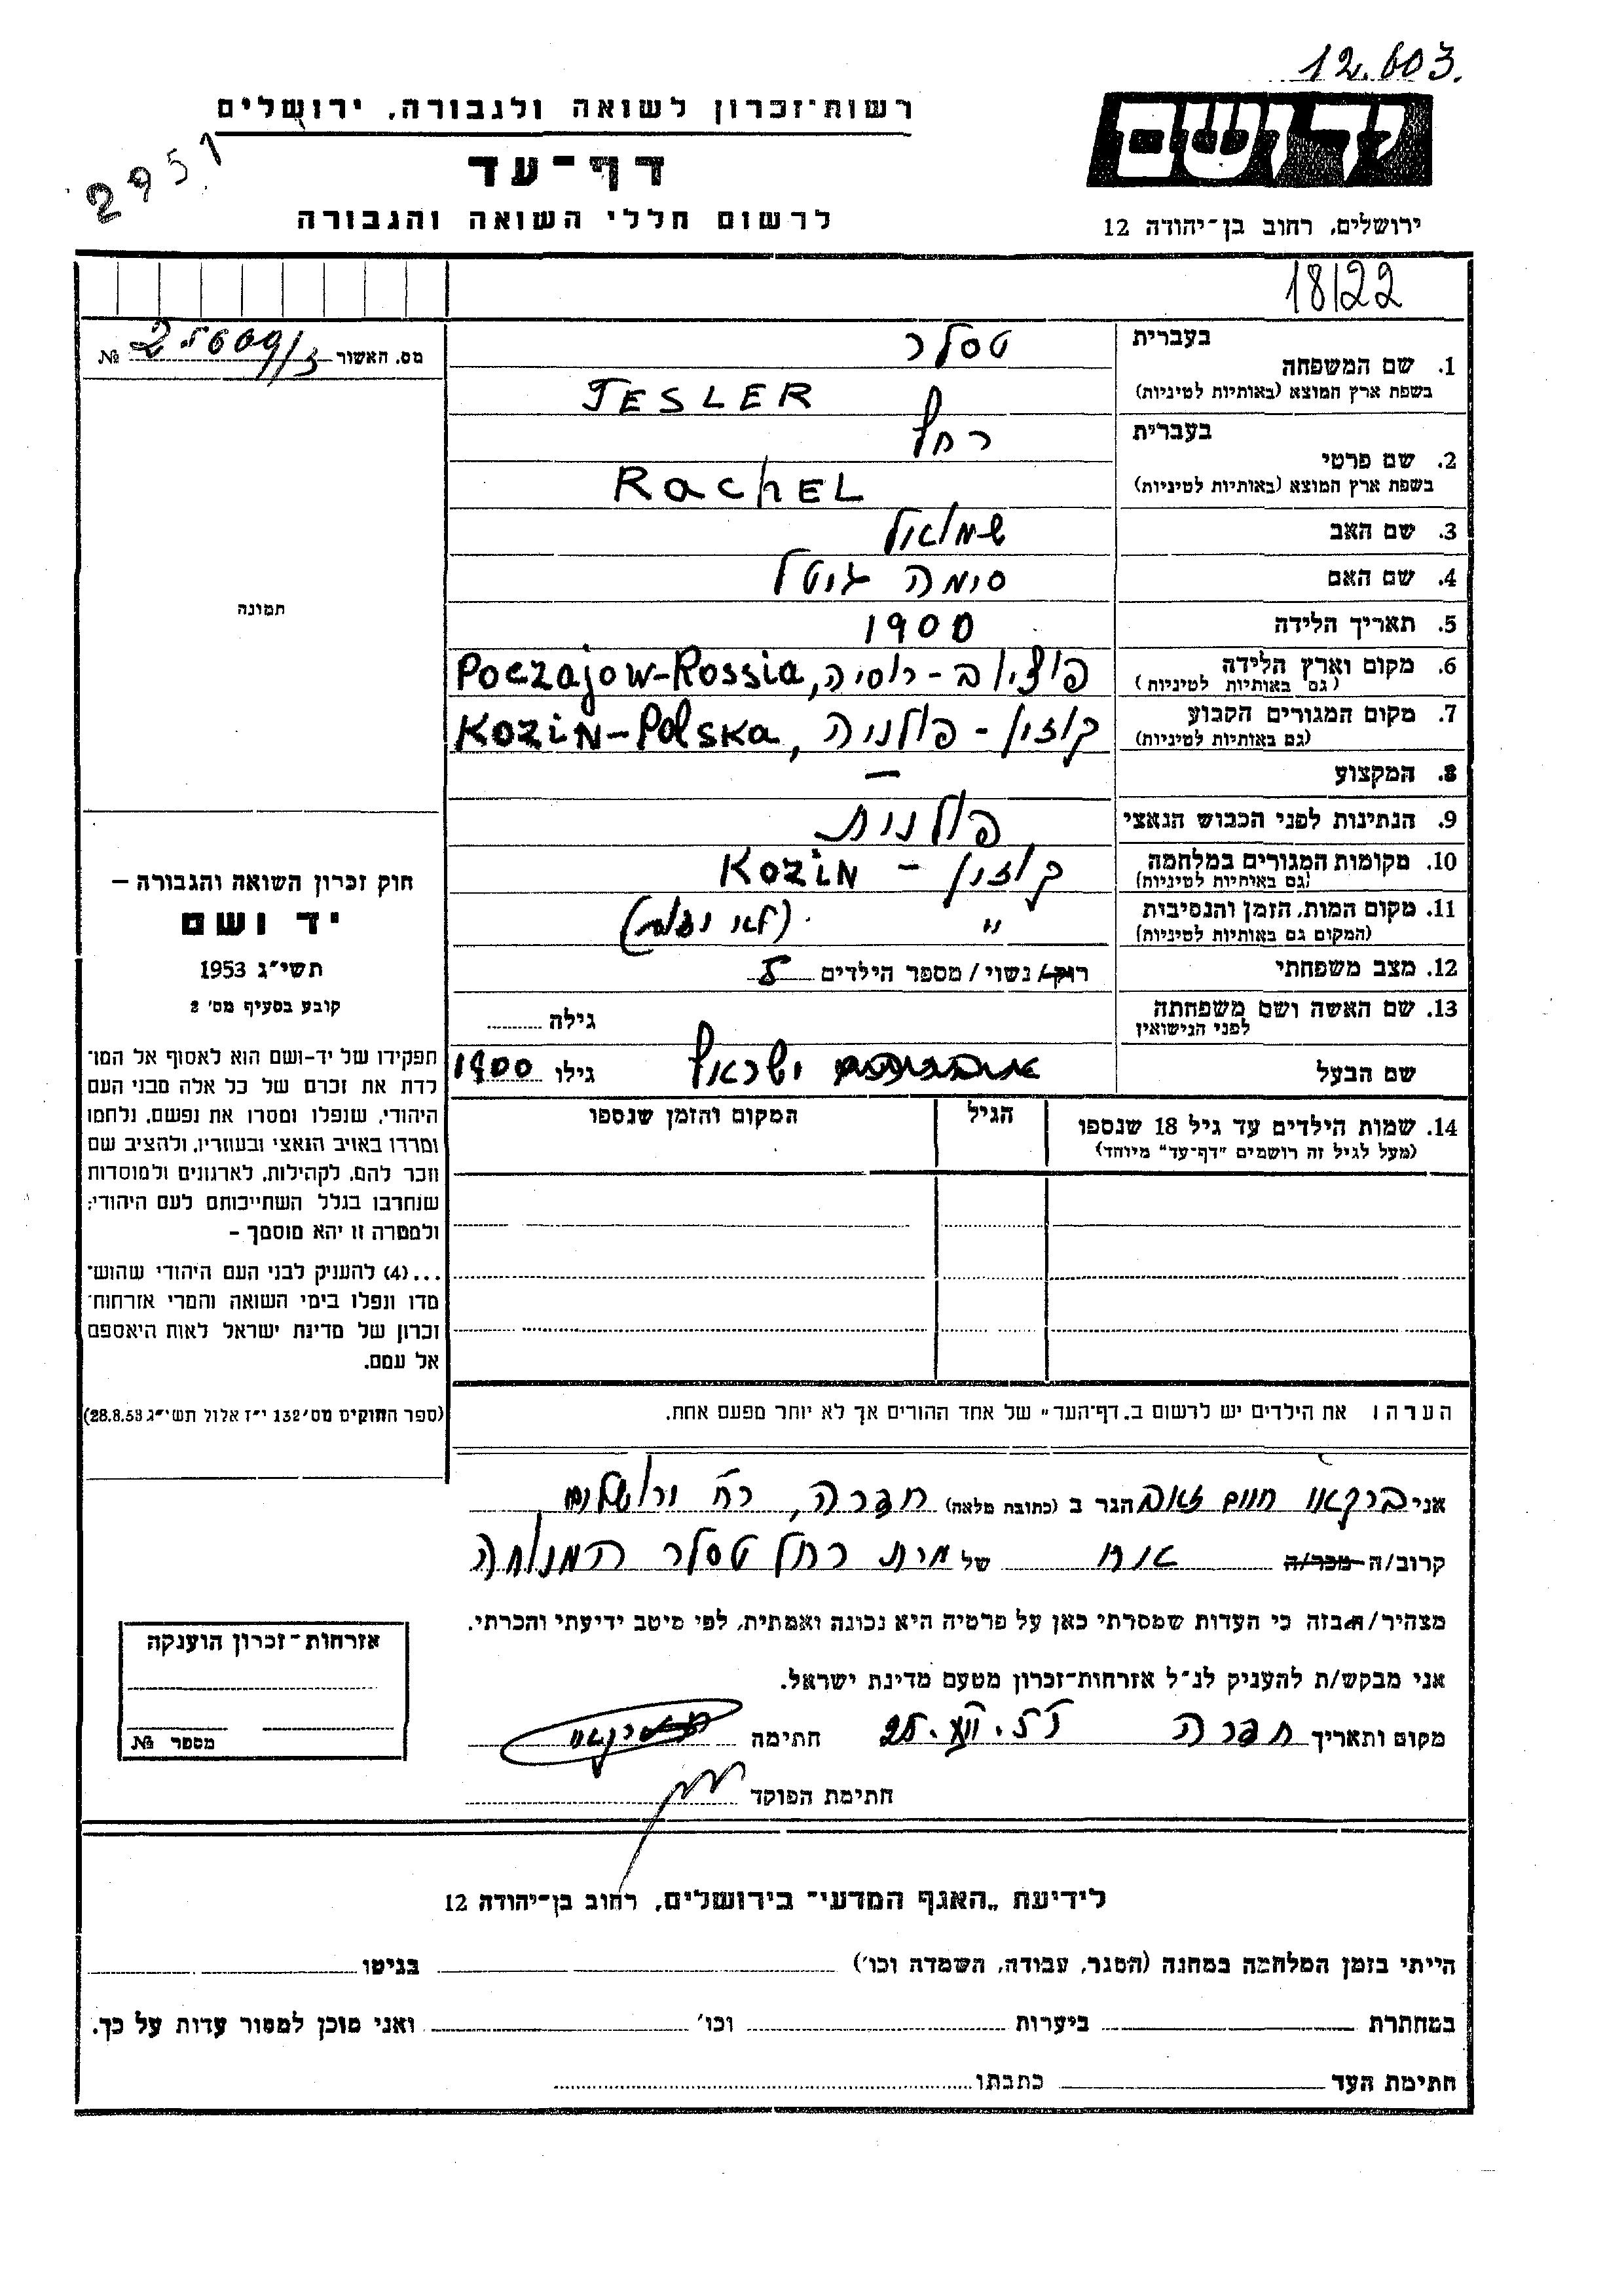 12.603.
יד ושם
רשות-זכרון לשואה ולגבורה, ירושלים
2951
דף-עד
לרשום חללי השואה והגבורה
ירושלים, רחוב בן-יהודה 12
18/22
מס. האשור 25609/3 №
בעברית
1. שם המשפחה טסלר
בשפת ארץ המוצא (באותיות לטיניות) TESLER
בעברית
2. שם פרטי רחל
בשפת ארץ המוצא (באותיות לטיניות) RachEL
3. שם האב שמואל
4. שם האם סימה גיטל
5. תאריך הלידה 1900
6. מקום וארץ הלידה פוצ'יוב - רוסיה, Poczajow-Rossia
(גם באותיות לטיניות)
7. מקום המגורים הקבוע קוזין - פולניה, KOZiN-PolSKa
(גם באותיות לטיניות)
8. המקצוע —
9. הנתינות לפני הכבוש הנאצי פולנית
10. מקומות המגורים במלחמה קוזין - KOZiN
(גם באותיות לטיניות)
11. מקום המות, הזמן והנסיבות " (לא ידוע)
(המקום גם באותיות לטיניות)
12. מצב משפחתי רוק/ נשוי / מספר הילדים 5
13. שם האשה ושם משפחתה גילה
לפני הנישואין
שם הבעל ישראל גילו 1900
14. שמות הילדים עד גיל 18 שנספו הגיל המקום והזמן שנספו
(מעל לגיל זה רושמים "דף-עד" מיוחד)
הערה: את הילדים יש לרשום ב„דף-העד" של אחד ההורים אך לא יותר מפעם אחת.
תמונה
חוק זכרון השואה והגבורה –
יד ושם
תשי"ג 1953
קובע בסעיף מס' 2
תפקידו של יד-ושם הוא לאסוף אל המו־
לדת את זכרם של כל אלה מבני העם
היהודי, שנפלו ומסרו את נפשם, נלחמו
ומרדו באויב הנאצי ובעוזריו, ולהציב שם
וזכר להם, לקהילות, לארגונים ולמוסדות
שנחרבו בגלל השתייכותם לעם היהודי;
ולמטרה זו יהא מוסמך –
...(4) להעניק לבני העם היהודי שהוש־
מדו ונפלו בימי השואה והמרי אזרחות־
זכרון של מדינת ישראל לאות היאספם
אל עמם.
(ספר החוקים מס' 132 י"ז אלול תשי"ג 28.8.53)
אני ברקאי חיים זאב הגר ב (כתובת מלאה) חדרה, רח' ירושלים
קרוב/ה מכר/ה אחי של מרת רחל טסלר המנוחה
מצהיר/ה בזה כי העדות שמסרתי כאן על פרטיה היא נכונה ואמתית, לפי מיטב ידיעתי והכרתי.
אני מבקש/ת להעניק לנ"ל אזרחות-זכרון מטעם מדינת ישראל.
מקום ותאריך חדרה חתימה
חתימת הפוקד
אזרחות-זכרון הוענקה
מספר №
לידיעת „האגף המדעי" בירושלים, רחוב בן-יהודה 12
הייתי בזמן המלחמה במחנה (הסגר, עבודה, השמדה וכו') בגיטו
במחתרת ביערות וכו' ואני מוכן למסור עדות על כך.
חתימת העד כתבתו